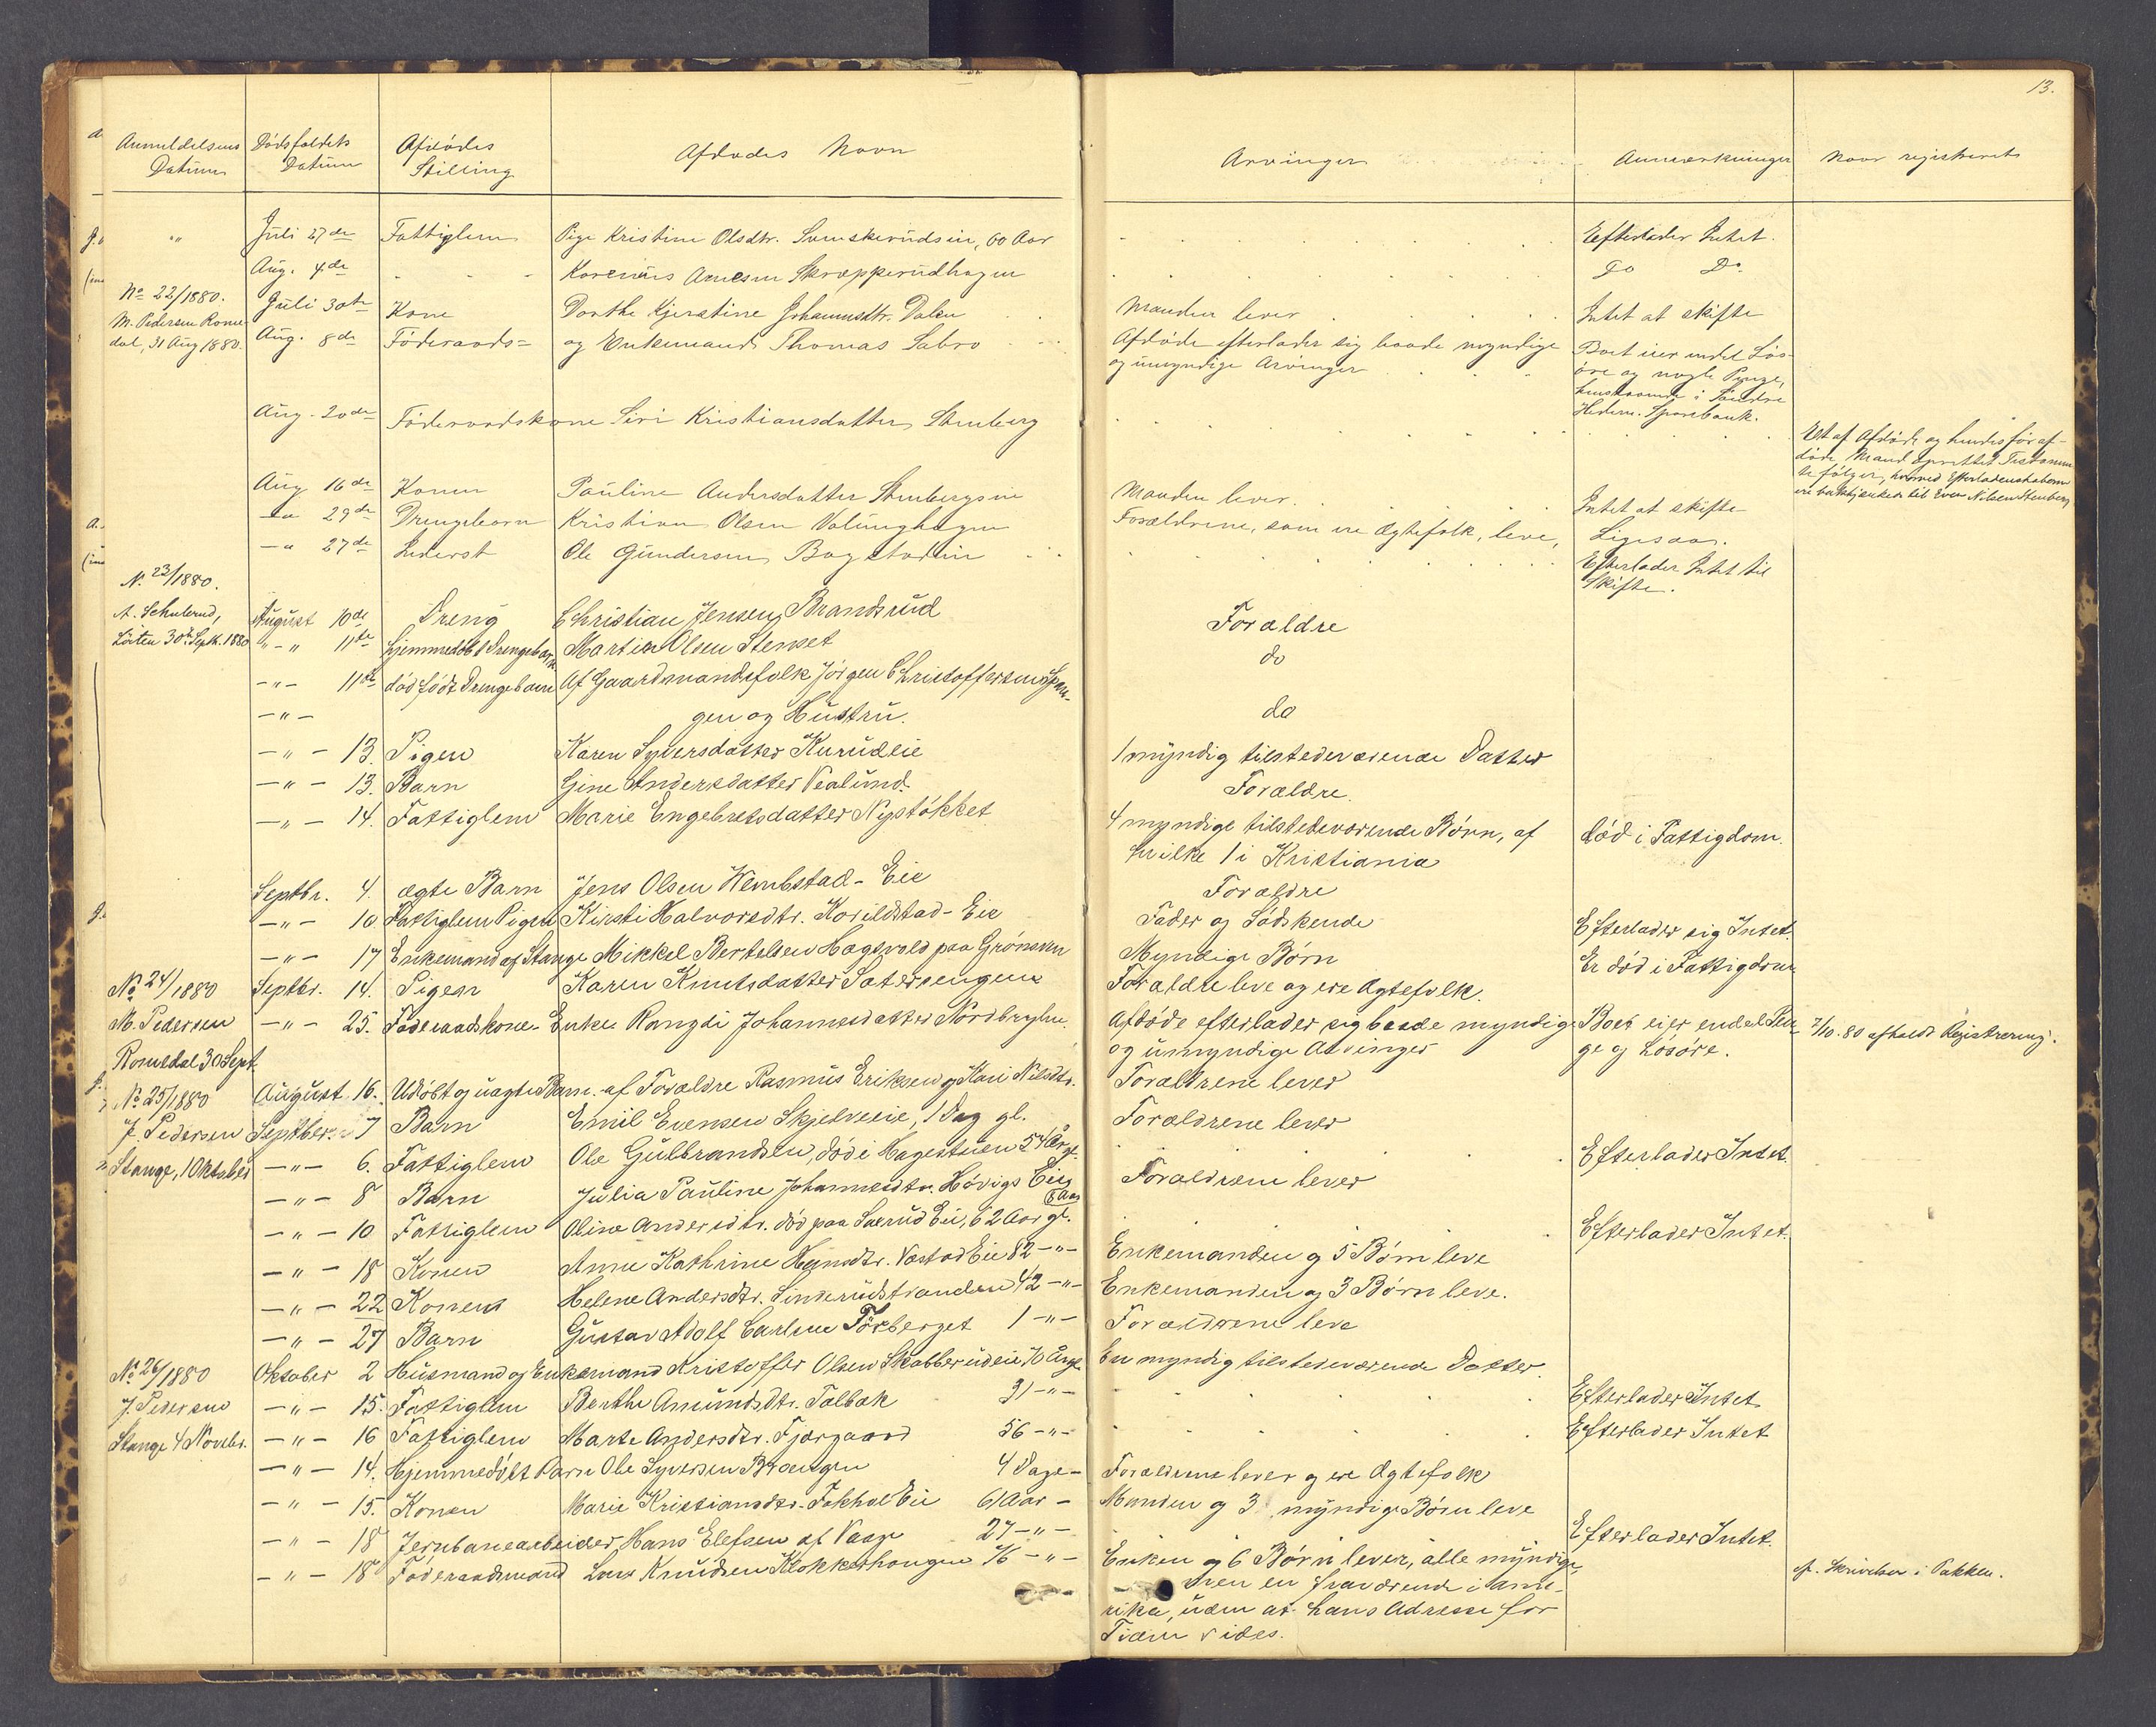 13.
Anmeldelsens Datum Dödsfaldets Datum Afdödes Stilling Afdødes Navn Arvinger Anmærkninger Naar registreret
" Juli 27de Fattiglem Pige Kristine Olsdtr. 60 Aar Efterlader Intet.
Aug. 4de - - - Karenius Arnesen Skræpperudhagen Do Do
No 22/1880. Juli 30te Kone Dorthe Kjerstine Johannesdtr. Dalen Manden lever Intet at skifte
M. Pedersen Rome-
dal, 31 Aug 1880. Aug. 8de Föderaads= og Enkemand Thomas Sabro Afdöde efterlader sig baade myndige Boet eier endel Lös-
og umyndige Arvinger öre og nogle Penge,
i Söndre
Hedem. Sparebank.
Aug. 20de Föderaadskone Siri Kristiansdatter Stenberg
Et af Afdöde og hendes föraf-
döde Mand oprettet Testamen-
te fölger, hvorved Efterladenskaben
ere til Even Nilsen Stenberg
Aug 16de Konen Pauline Andersdatter Stenbergseie Manden lever. Intet at skifte
-"- 29de Drengebarn Kristian Olsen Volunghagen Forældrene, som ere Ægtefolk, leve, Ligesaa.
-"- 27de Inderst Ole Gundersen Bagstadeie Efterlader Intet til
Skifte.
No 23/1880.
A. Schulerud,
Löiten 30te Sept. 1880
August 10de Dreng Christian Jensen Brandsrud Forældre
" " 11te Hjemmedöbt Drengebarn Martin Olsen Stenset do
-"- 11te dödfödt Drengebarn Af Gaardmandsfolk Jörgen Christoffersen Span-
-"- gen og Hustru. do
-"- 13. Pigen Karen Syversdatter Kurudeie 1 myndig tilstedeværende Datter
-"- 13. Barn Gine Andersdatter Vealund. Forældre.
-"- 14. Fattiglem Marie Engebretsdatter Nystökket 4 myndige tilstedeværende Börn, af död i Fattigdom.
hvilke 1 i Kristiania
Septbr. 4. ægte Barn Jens Olsen Wembstad-Eie Forældre
-"- 10 Fattiglem Pigen Kirsti Halvorsdtr. Korildstad-Eie Fader og Södskende Efterlader sig Intet.
-"- 17 Enkemand af Stange Mikkel Bertelsen Hagsvold paa Grönsven Myndige Börn Er död i Fattigdom
No 24/1880 Septbr. 14. Pigen Karen Knutsdatter Sæterengen Forældre leve og ere Ægtefolk.
M. Pedersen -"- 25. Föderaadskone- Enke Rangdi Johannesdatter Nordbryhn. Afdöde efterlader sig baade myndige Boet eier endel Pen- 7/10.80 afholdt Registrering.
Romedal 30 Sept. og umyndige Arvinger ge og Lösöre.
No 25/1880 August 16. Udöbt og uægte Barn af Forældre Rasmus Eriksen og Kari Nilsdtr. Forældrene lever
J. Pedersen Septber. 7 Barn Emil Evensen Skjelveeie, 1 Dag gl. Forældrene lever
Stange, 1 Oktober -"- 6. Fattiglem Ole Gulbrandsen, död i Hagestuen 54 Aar gl. Efterlader Intet.
-"- 8 Barn Julia Pauline Johannesdtr. Hövigs Eie Forældrene lever
8 Aar
-"- 10 Fattiglem Oline Andersdtr. död paa Særud Eie, 62 Aar gl. Efterlader Intet.
-"- 18 Konen Anne Kathrine Hansdtr. Vastad Eie 82 -"- Enkemanden og 5 Börn leve
-"- 22 Konen Helene Andersdtr. Linderudstranden 42 -"- Enkemanden og 3 Börn leve.
-"- 27 Barn Gustav Adolf Carlsen Törberget 1 -"- Forældrene leve
No 26/1880 Oktober 2 Husmand og Enkemand Kristoffer Olsen Skabberudeie 70 Aar gl. En myndig tilstedeværende Datter.
J. Pedersen -"- 15. Fattiglem Berthe Amundsdtr. Tolbak 31 -"- Efterlader Intet
Stange 4 Novbr. -"- 16 Fattiglem Marte Andersdtr. Fjærgaard 56 -"- Efterlader Intet
-"- 14. Hjemmedöbt Barn Ole Syversen Brængen 4 Dage - Forældrene lever og ere Ægtefolk
-"- 15. Konen Marie Kristiansdtr. Fokhol Eie 61 Aar - Manden og 3 myndige Börn leve
-"- 18 Jernbanearbeider Hans Elefsen af Vaage 27 -"- Efterlader Intet.
-"- 18 Föderaadsmand Lars Knudsen Klokkerhaugen 76 -"- Enken og 6 Börn lever, alle myndige,
men en fraværende i Ame-
rika, uden at hans Adresse for
Tiden vides.
cf. Skrivelse i Pakken.